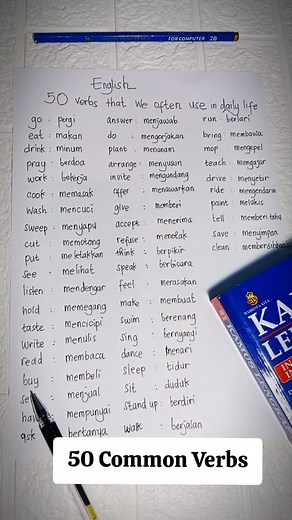 FOR COMPUTER 2B
English
50 verbs that we often use in daily life
go : pergi
eat : makan
drink : minum
pray : berdoa
work : bekerja
cook : memasak
wash : mencuci
sweep : menyapu
cut : memotong
put : meletakkan
see : melihat
listen : mendengar
hold : memegang
taste : mencicipi
write : menulis
read : membaca
buy : membeli
menjual
mempunyai
ask : bertanya
answer : menjawab
do : mengerjakan
plant : menanam
arrange : menyusun
invite : mengundang
offer : menawarkan
give : memberi
accept : menerima
refuse : menolak
think : berpikir
speak : berbicara
feel : merasakan
make : membuat
swim : berenang
sing : bernyanyi
dance : menari
sleep : tidur
sit : duduk
stand up : berdiri
walk : berjalan
run : berlari
bring : membawa
mop : mengepel
teach : mengajar
drive : menyetir
ride : mengendarai
paint : melukis
tell : memberi tahu
save : menyimpan
clean :
KA
LE
50 Common Verbs